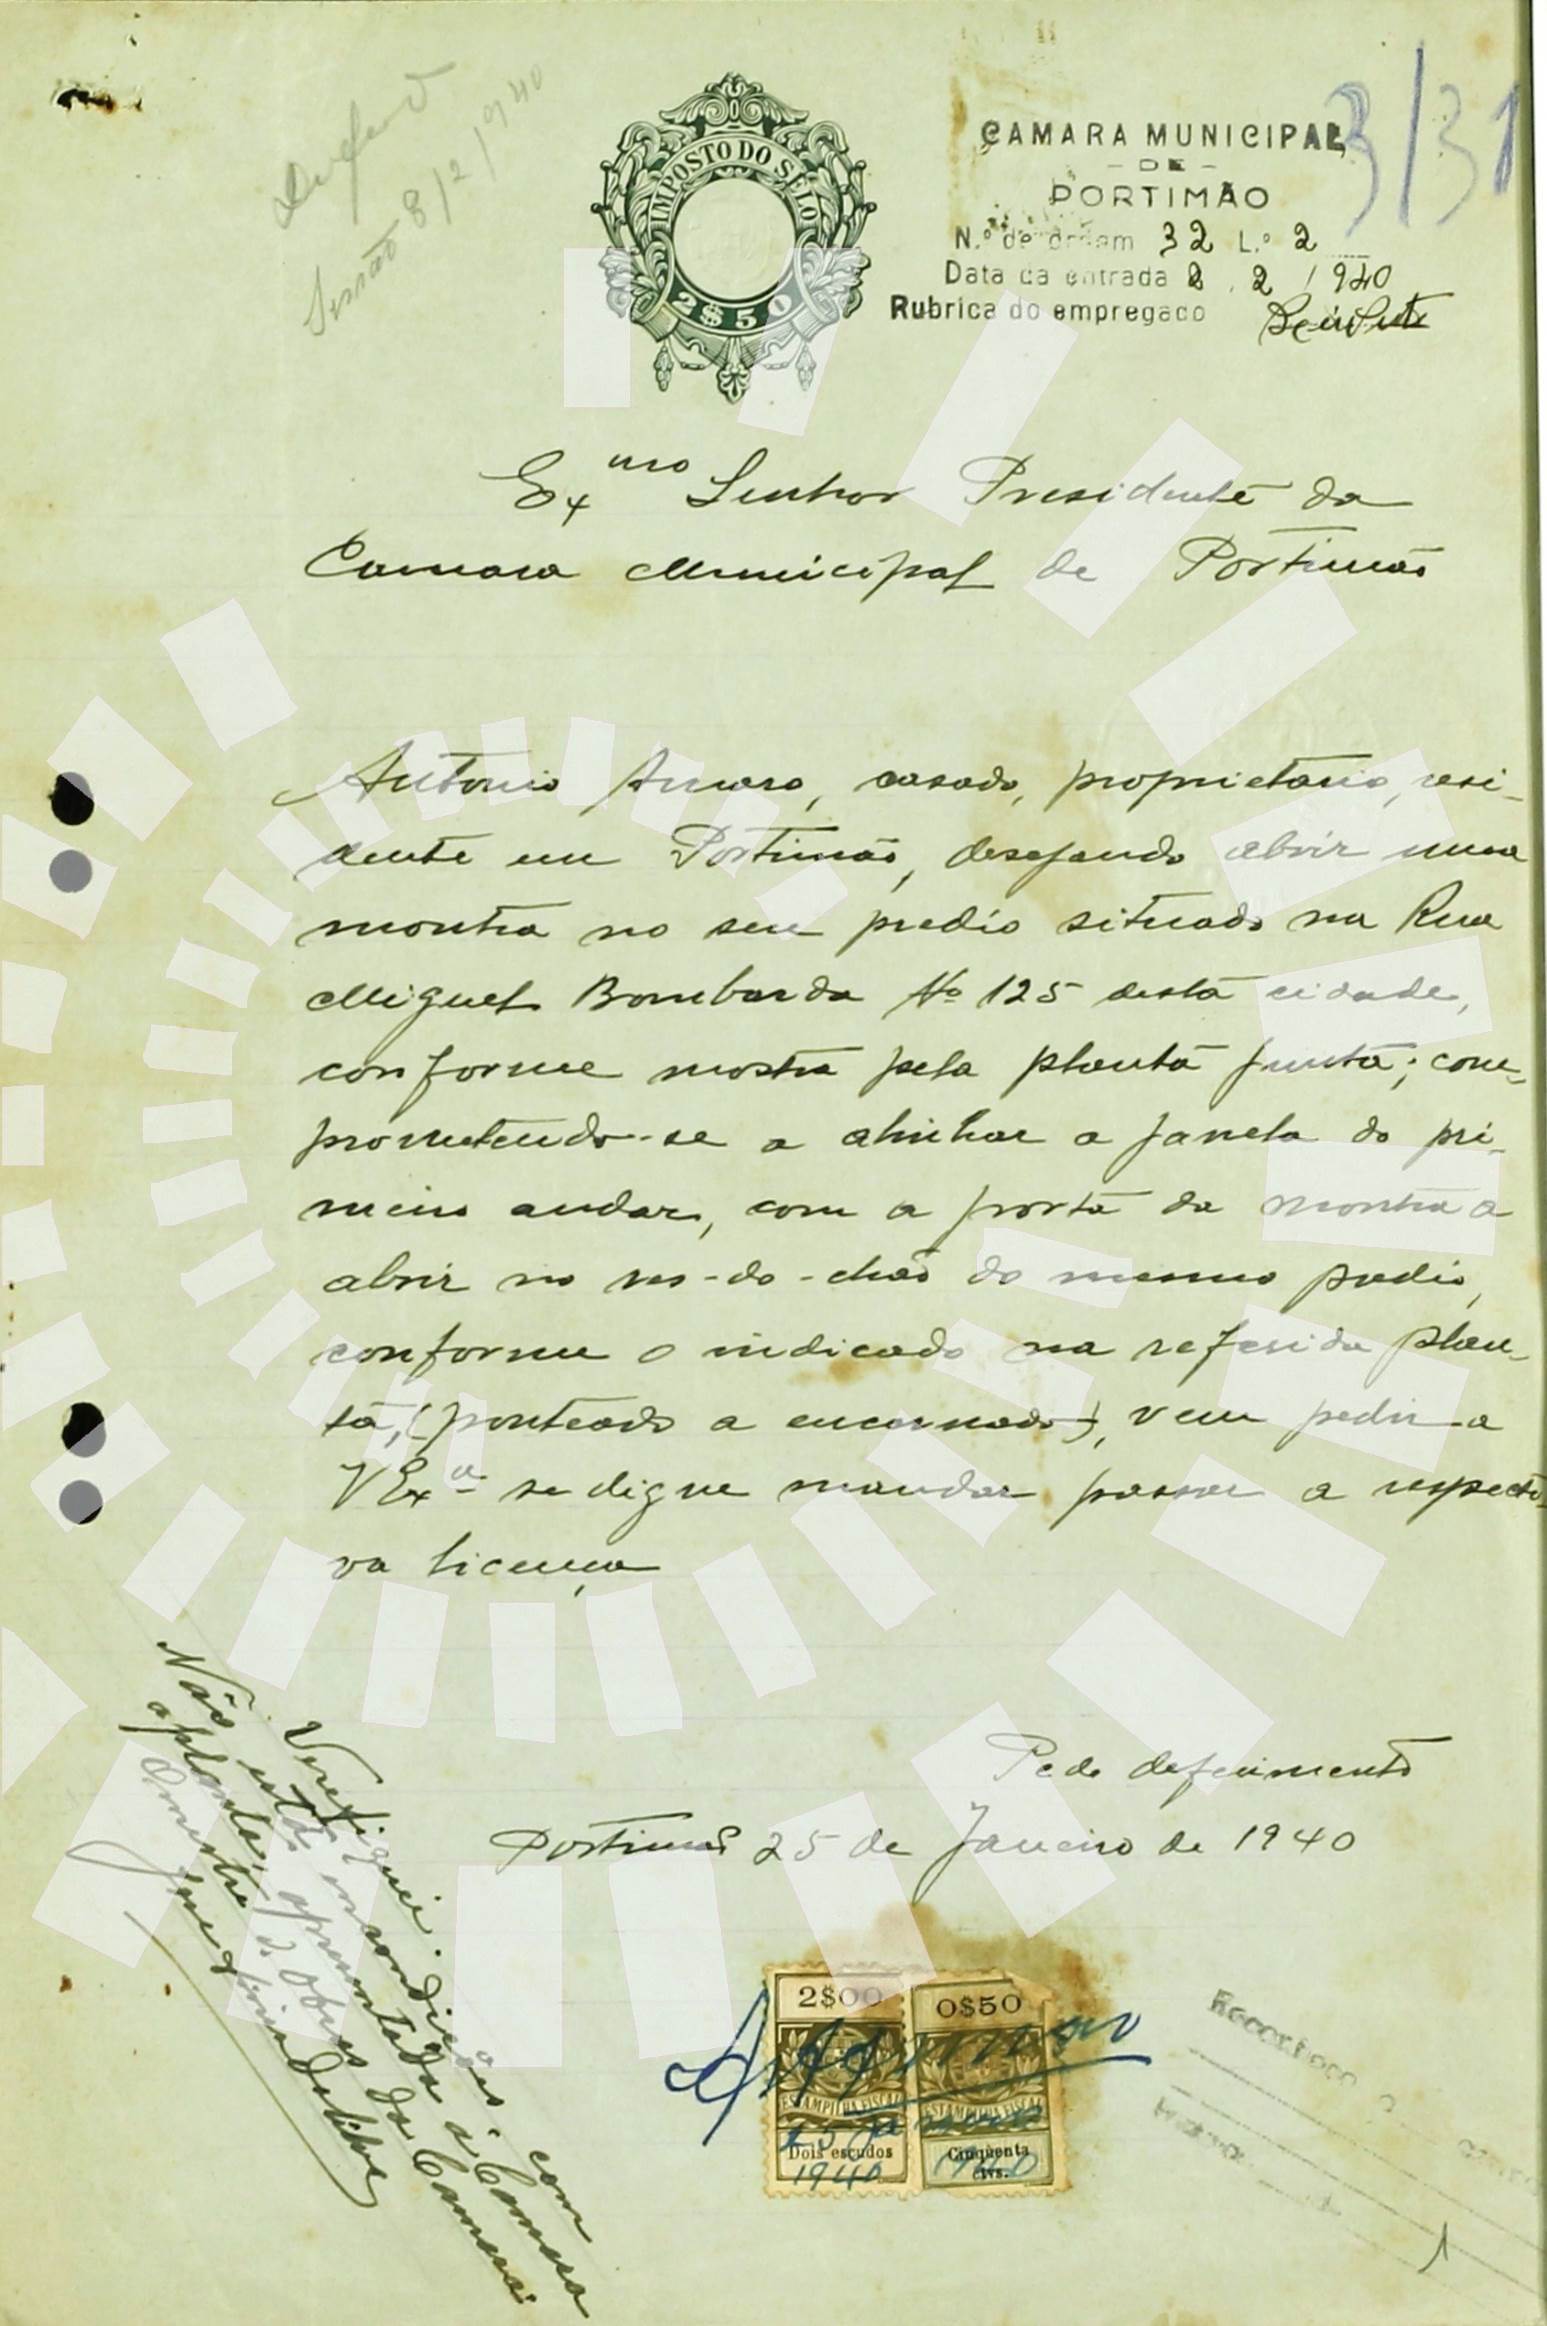 Sessão 8/2/1940
IMPOSTO DO SELO
2$50
3/31
CAMARA MUNICIPAL
- DE -
PORTIMÃO
N.º de ordem 32 L.º 2
Data da entrada 8 . 2 / 940
Rubrica do empregado
Exmo Senhor Presidente da
Camara Municipal de Portimão
Antonio Amaro, casado, proprietario, resi-
dente em Portimão, desejando abrir uma
montra no seu predio situado na Rua
Miguel Bombarda Nº 125 desta cidade,
conforme mostra pela planta junta; com-
prometendo-se a alinhar a janela do pri-
meiro andar, com a porta da montra a
abrir no res-do-chão do mesmo predio,
conforme o indicado na referida plan-
ta, (ponteado a encarnado), vem pedir a
V Exª se digne mandar passar a respecti-
va licença
Pede deferimento
Portimão 25 de Janeiro de 1940
Verifiquei.
Não está em condições com
a planta apresentada á Camara
O mestre de Obras da Camara.
2$00
0$50
ESTAMPILHA FISCAL
ESTAMPILHA FISCAL
25 Janeiro
Dois escudos
Cinqüenta
ctvs.
1940
1940
Reconheço a